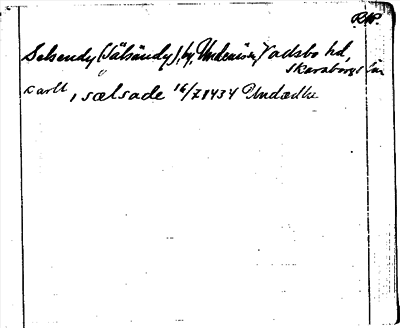 RAP.
Selsendy (Sälsändy), by, Undenäs sn, Vadsbo hd,
Skaraborgs län
carll, sælsade 16/7 1434 Undædha